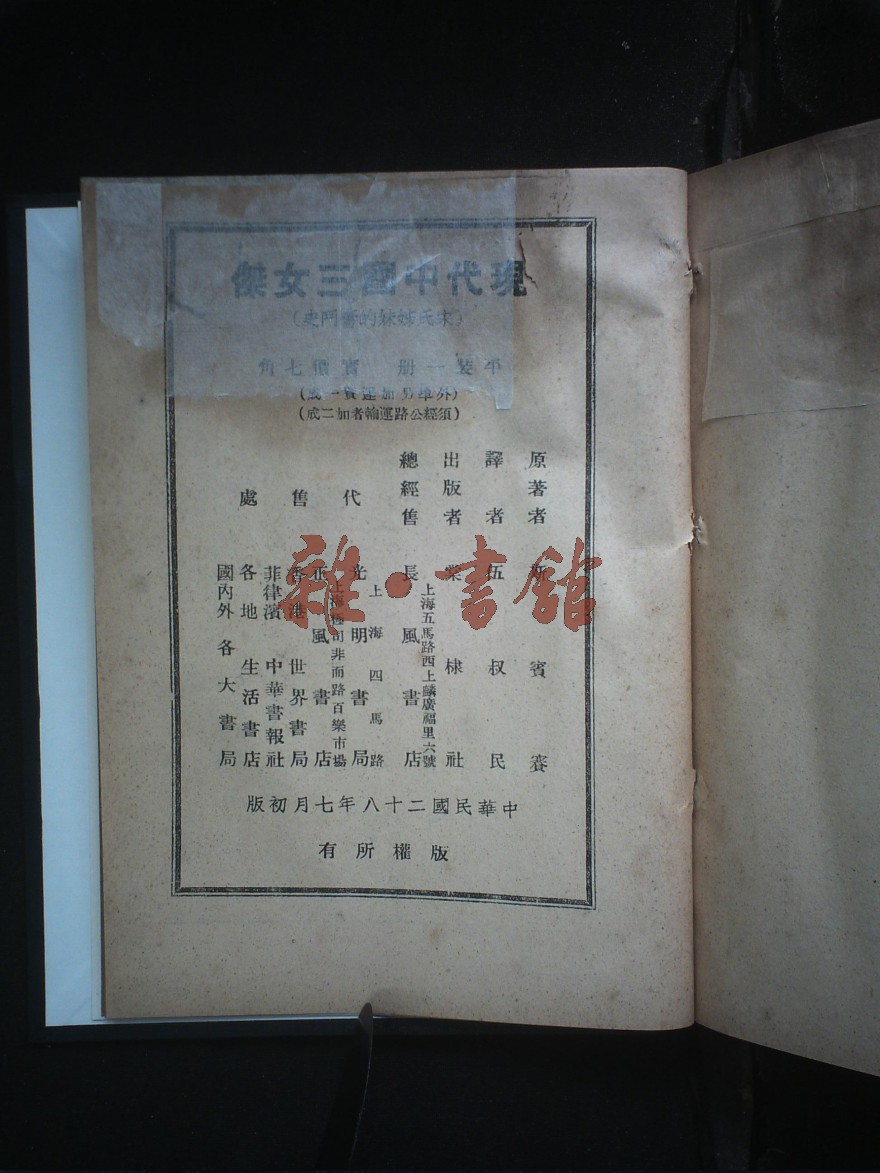 現代中國三女傑
(宋氏姊妹的奮鬥史)
平裝一册 實價七角
(外埠另加運費一成)
(須經公路運輸者加二成)
原著者 斯賓賽
譯者 伍叔民
出版者 業棣社
總經售 長風書店
上海五馬路西上麟廣福里六號
代售處
光明書局
上海四馬路
亚風書店
上海極司非而路百樂市場
香港世界書局
菲律濱中華書報社
各地生活書店
國內外各大書局
中華民國二十八年七月初版
版權所有
雜·書館